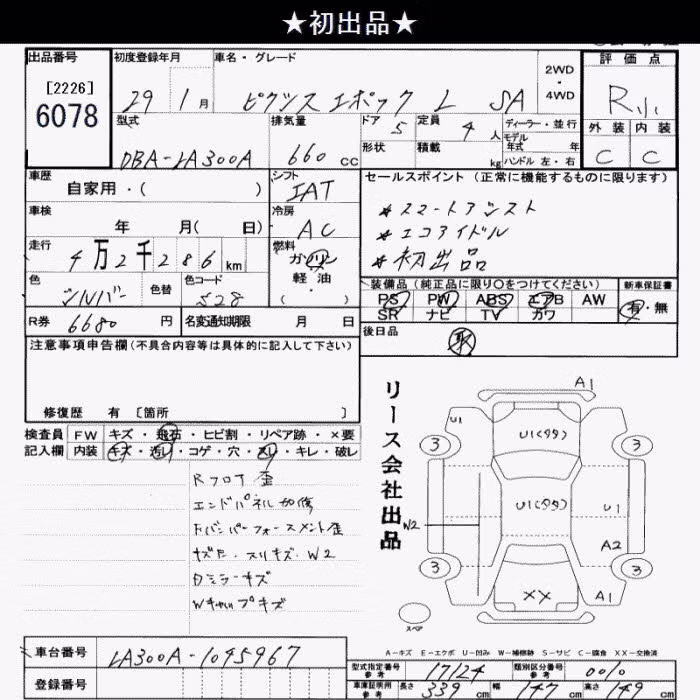 ★初出品★
出品番号
[2226]
6078
初度登録年月
29 1月
車名・グレード
ピクシス エポック L SA
2WD
・
4WD
評価点
R
外装 内装
C C
型式
DBA-LA300A
排気量
660 CC
ドア 5
定員 4人
形状
積載 kg
ディーラー・並行
モデル
年式 年
ハンドル 左・右
車歴
自家用・( )
シフト
IAT
車検
年 月( 日)
冷房
AC
走行
4万2千286km
燃料
ガソリン
軽油
・
色
シルバー
色替
色コード
S28
R券 6680円
名変通知期限 月 日
セールスポイント(正常に機能するものに限ります)
*スマートアシスト
*エコアイドル
*初出品
装備品(純正品に限り○をつけてください)
PS PW ABS エアB AW
SR ナビ TV カワ
新車保証書
有・無
後日品
取
注意事項申告欄(不具合内容等は具体的に記入して下さい)
修復歴 有 [箇所 ]
検査員
記入欄
FW キズ・飛石・ヒビ割・リペア跡・×要
内装 キズ・汚レ・コゲ・穴・スレ・キレ・破レ
Rフロア 歪
エンドパネル 加修
Fバンパーフォースメント歪
キズ凹.スリキズ.W2
Dミラーキズ
Wキャップキズ
リース会社出品
A1
U1
U1(タタ)
3 3
U1(タタ)
U1
W2
A2
3 3
XX
A1
スペア
A-キズ E-エクボ U-凹み W-補修跡 S-サビ C-腐食 XX-交換済
車台番号 LA300A-1045967
登録番号
型式指定番号
参考
17124
類別区分番号
参考
0010
車庫証明用
参考
長さ 339cm 幅 147cm 高さ 149cm